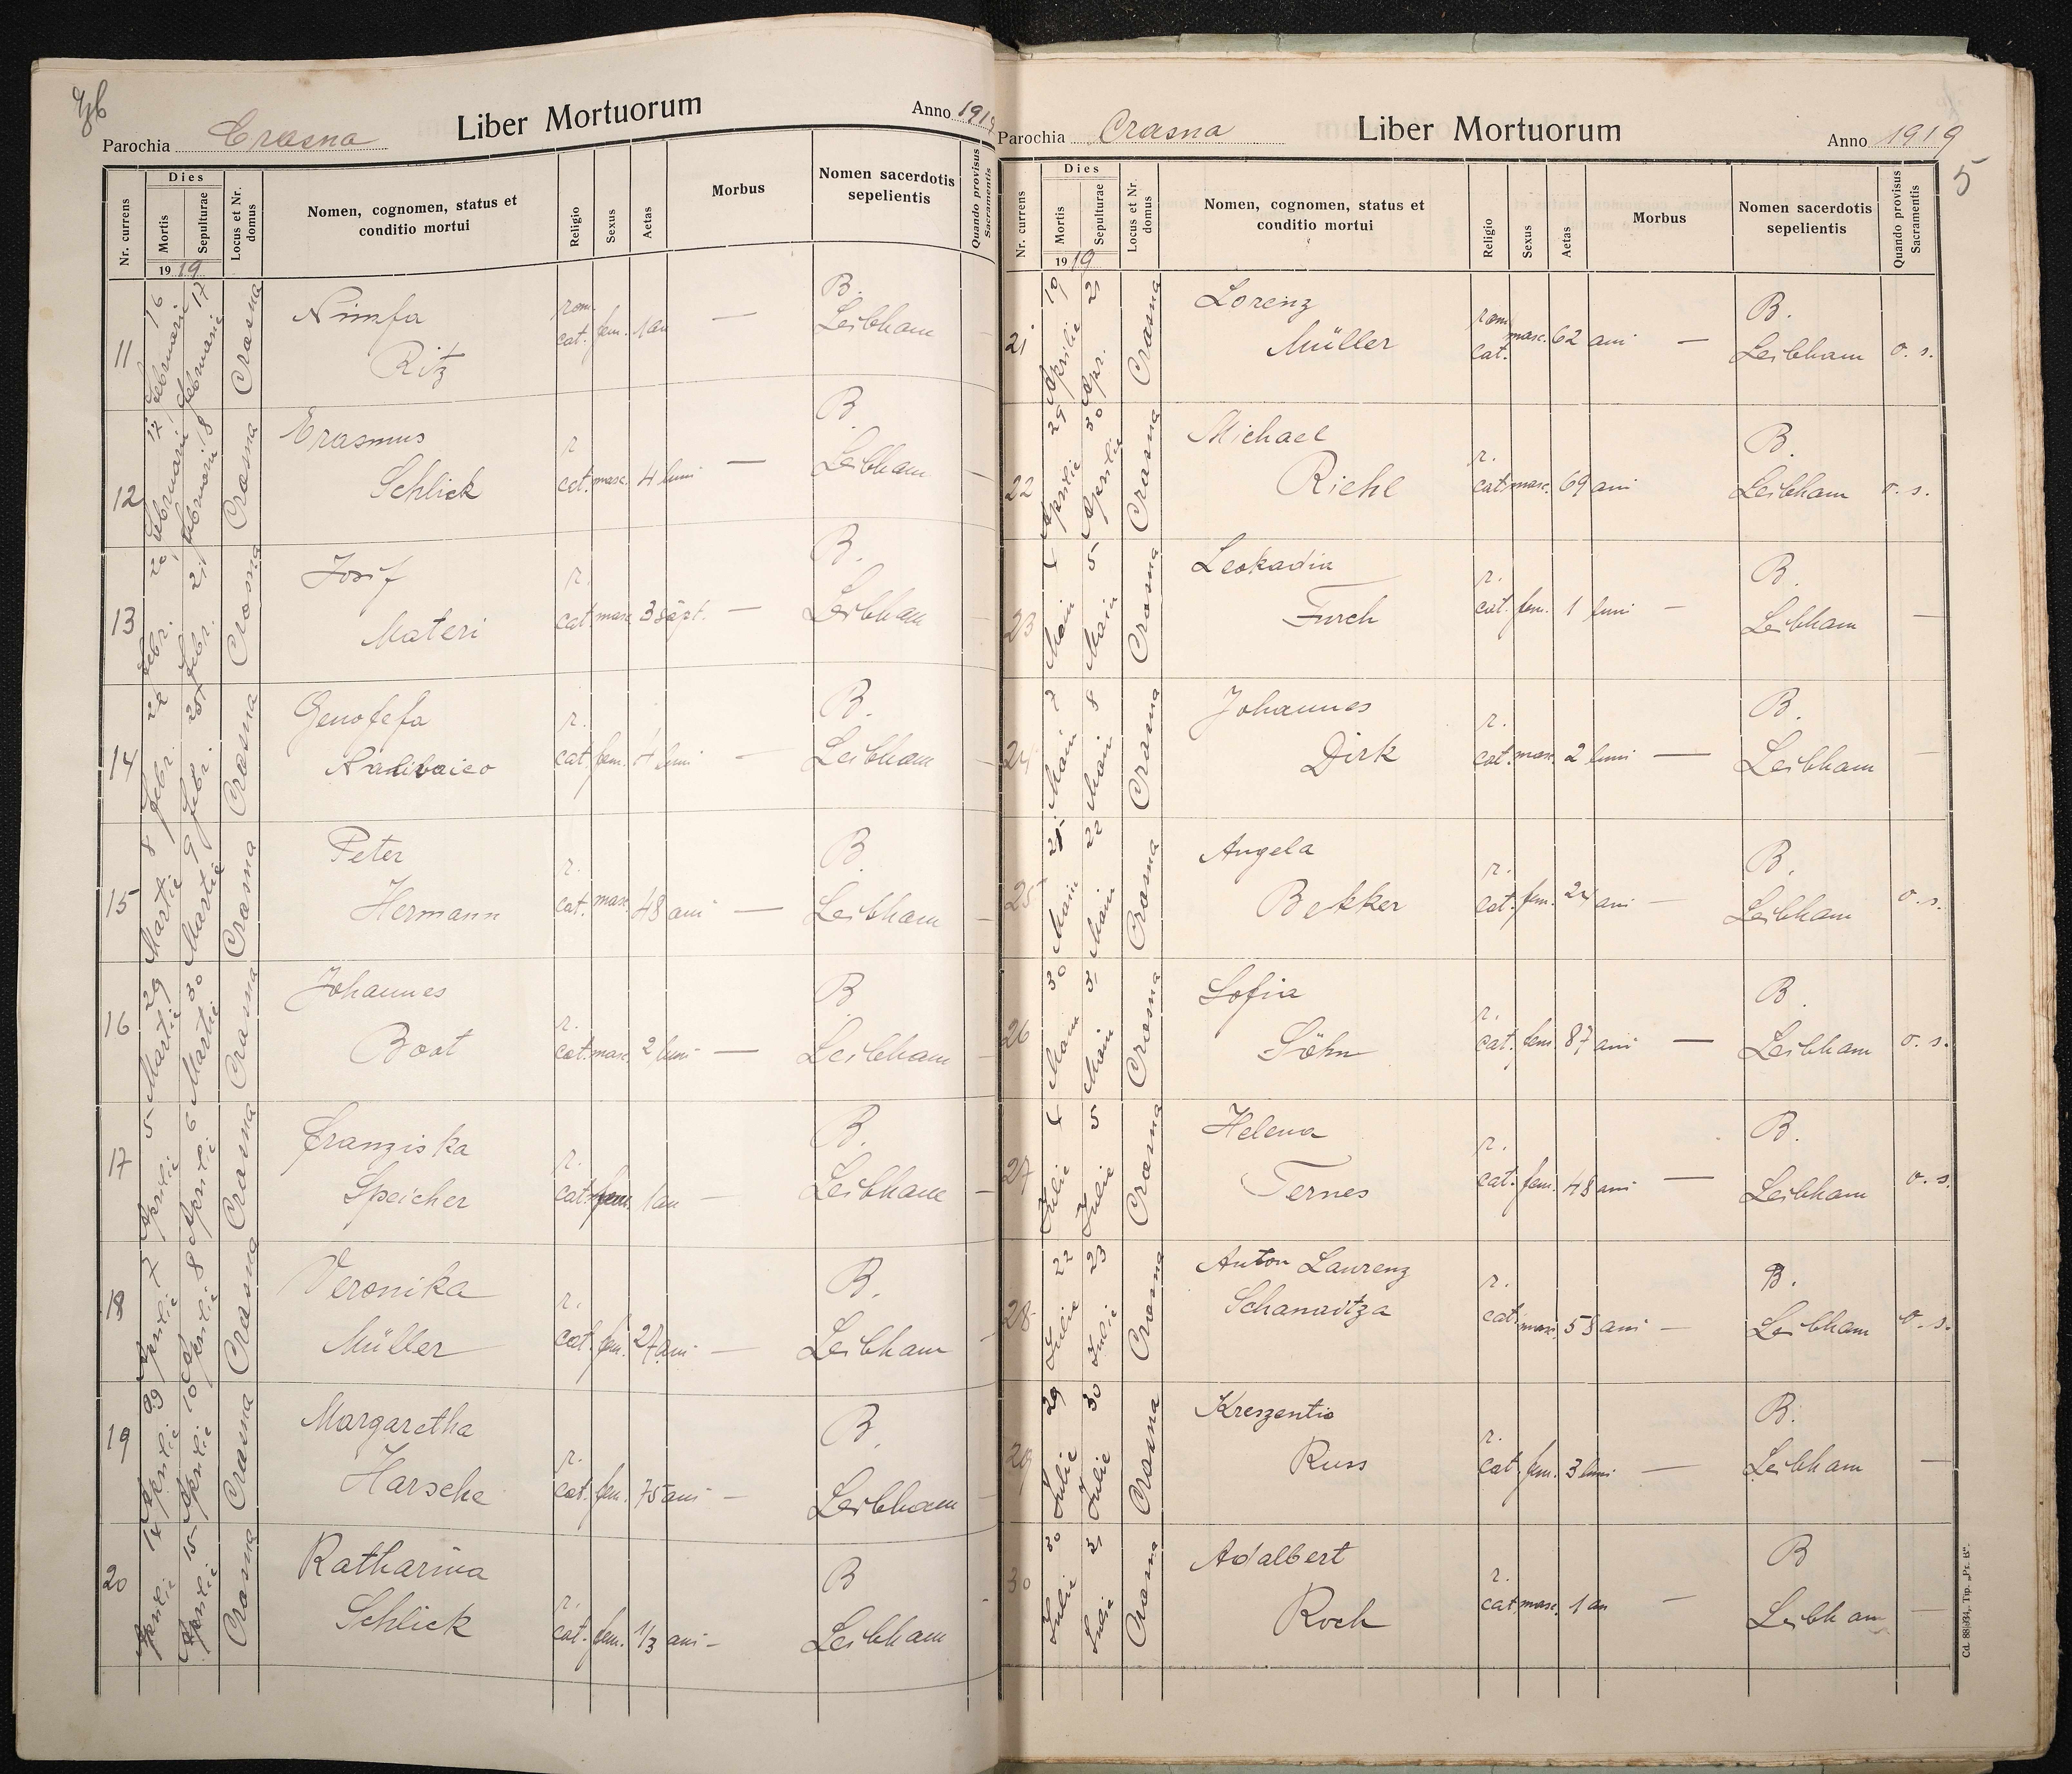 Parochia Crasna Liber Mortuorum Anno 1919
Nr. currens
Dies
Mortis
Sepulturae
1919
Locus et Nr. domus
Nomen, cognomen, status et
conditio mortui
Religio
Sexus
Aetas
Morbus
Nomen sacerdotis
sepelientis
Quando provisus
Sacramentis
11 16 februarie 17 februarie Crasna Nimfa Ritz rom. cat. fem. 1 an — B. Leibham —
12 17 februarie 18 februarie Crasna Erasmus Schlick r. cat. masc. 4 luni — B. Leibham —
13 20 febr. 21 febr. Crasna Josif Materi r. cat. masc. 3 săpt. — B. Leibham —
14 febr. febr. Crasna Genofefa r. cat. fem. luni — B. Leibham —
15 8 Martie 9 Martie Crasna Peter Hermann r. cat. masc. 48 ani — B. Leibham —
16 29 Martie 30 Martie Crasna Johannes Boat r. cat. masc. 2 luni — B. Leibham —
17 5 Aprilie 6 Aprilie Crasna Franziska Speicher r. cat. fem. 1 an — B. Leibham —
18 7 Aprilie 8 Aprilie Crasna Veronika Müller r. cat. fem. 27 ani — B. Leibham —
19 09 Aprilie 10 Aprilie Crasna Margaretha Harsche r. cat. fem. 75 ani — B. Leibham —
20 14 Aprilie 15 Aprilie Crasna Katharina Schlick r. cat. fem. 1/3 ani — B. Leibham -
Parochia Crasna Liber Mortuorum Anno 1919
5
Nr. currens
Dies
Mortis
Sepulturae
1919
Locus et Nr. domus
Nomen, cognomen, status et
conditio mortui
Religio
Sexus
Aetas
Morbus
Nomen sacerdotis
sepelientis
Quando provisus
Sacramentis
21 Aprilie Apr. Crasna Lorenz Müller rom. cat. masc. 62 ani — B. Leibham o. s.
22 29 Aprilie 30 Aprilie Crasna Michael Riehl r. cat. masc. 69 ani B. Leibham o. s.
23 4 Main 5 Main Crasna Leokadia Furch r. cat. fem. 1 luni — B. Leibham —
24 7 Main 8 Main Crasna Johannes Dirk r. cat. masc. 2 luni — B. Leibham —
25 21 Main 22 Main Crasna Angela Bekker r. cat. fem. 24 ani — B. Leibham o. s.
26 30 Main 31 Main Crasna Sofia Söhn r. cat. fem. 87 ani — B. Leibham o. s.
27 4 Iulie 5 Iulie Crasna Helena Ternes r. cat. fem. 48 ani — B. Leibham o. s.
28 22 Iulie 23 Iulie Crasna Anton Laurenz Schanaitza r. cat. masc. 58 ani — B. Leibham o. s.
29 29 Iulie 30 Iulie Crasna Kreszentia Russ r. cat. fem. 3 luni — B. Leibham —
30 30 Iulie 31 Iulie Crasna Adalbert Koch r. cat. masc. 1 an — B Leibham —
Cd. 88|934, Tip. „Pr. B".